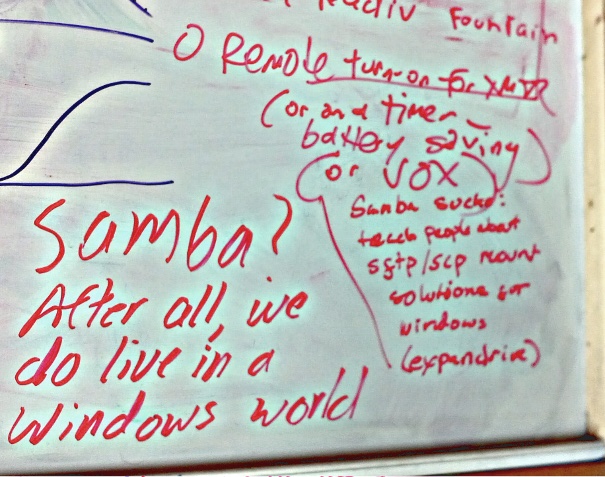 Fountain
O Remote turn-on for XMTR
(or on a timer -
battery saving)
(or VOX)
Samba sucks:
teach people about
sftp/scp mount
solutions for
windows
(expandrive)
Samba?
After all, we
do live in a
Windows world